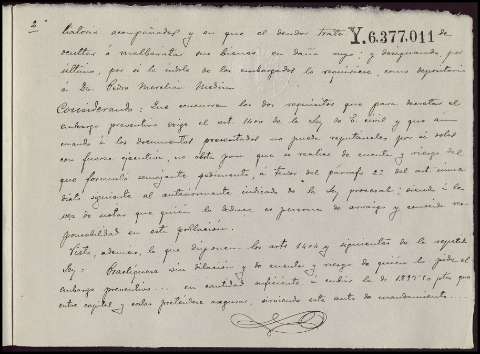 2
Y.6.377.011
talones acompañados y en que el deudor trata de
ocultar ó malbaratar sus bienes en daño suyo: y designando por
último, por si la índole de los embargados lo requiriese, como depositario
á Dn. Pedro Medina
Considerando: Que concurren los dos requisitos que para decretar el
embargo preventivo exige el art. 1400 de la Ley de E. civil y que aun
cuando á los documentos presentados no puede reputárseles por si solos
con fuerza ejecutiva, no obsta para que se realice de cuenta y riesgo del
que formuló semejante pedimento, á tenor del párrafo 2º del art. inme-
diato siguiente al anteriormente indicado de la Ley procesal; siendo á la
vez de notar que quien lo deduce es persona de arraigo y conocida res-
ponsabilidad en esta población.
Visto, además, lo que disponen los arts 1404 y siguientes de la repetida
Ley: Practíquese sin dilación y de cuenta y riesgo de quien lo pide el
embargo preventivo... en cantidad suficiente á cubrir la de ptas que
entre capital y costas pretendese asegurar, sirviendo este auto de mandamiento...